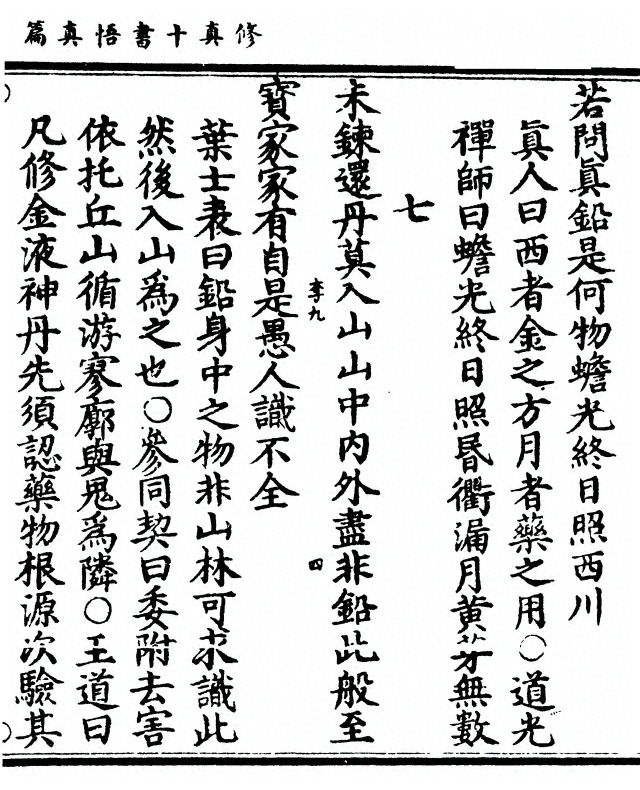 修真十書悟真篇
若問眞鉛是何物蟾光終日照西川
眞人曰西者金之方月者藥之用〇道光
禪師曰蟾光終日照昬衢漏月黃芽無數
七
未鍊還丹莫入山山中内外盡非鉛此般至
李九
四
寳家家有自是愚人識不全
葉士表曰鉛身中之物非山林可求識此
然後入山爲之也〇參同契曰委附去害
依托丘山循游寥廓與鬼爲隣〇王道曰
凡修金液神丹先須認藥物根源次驗其